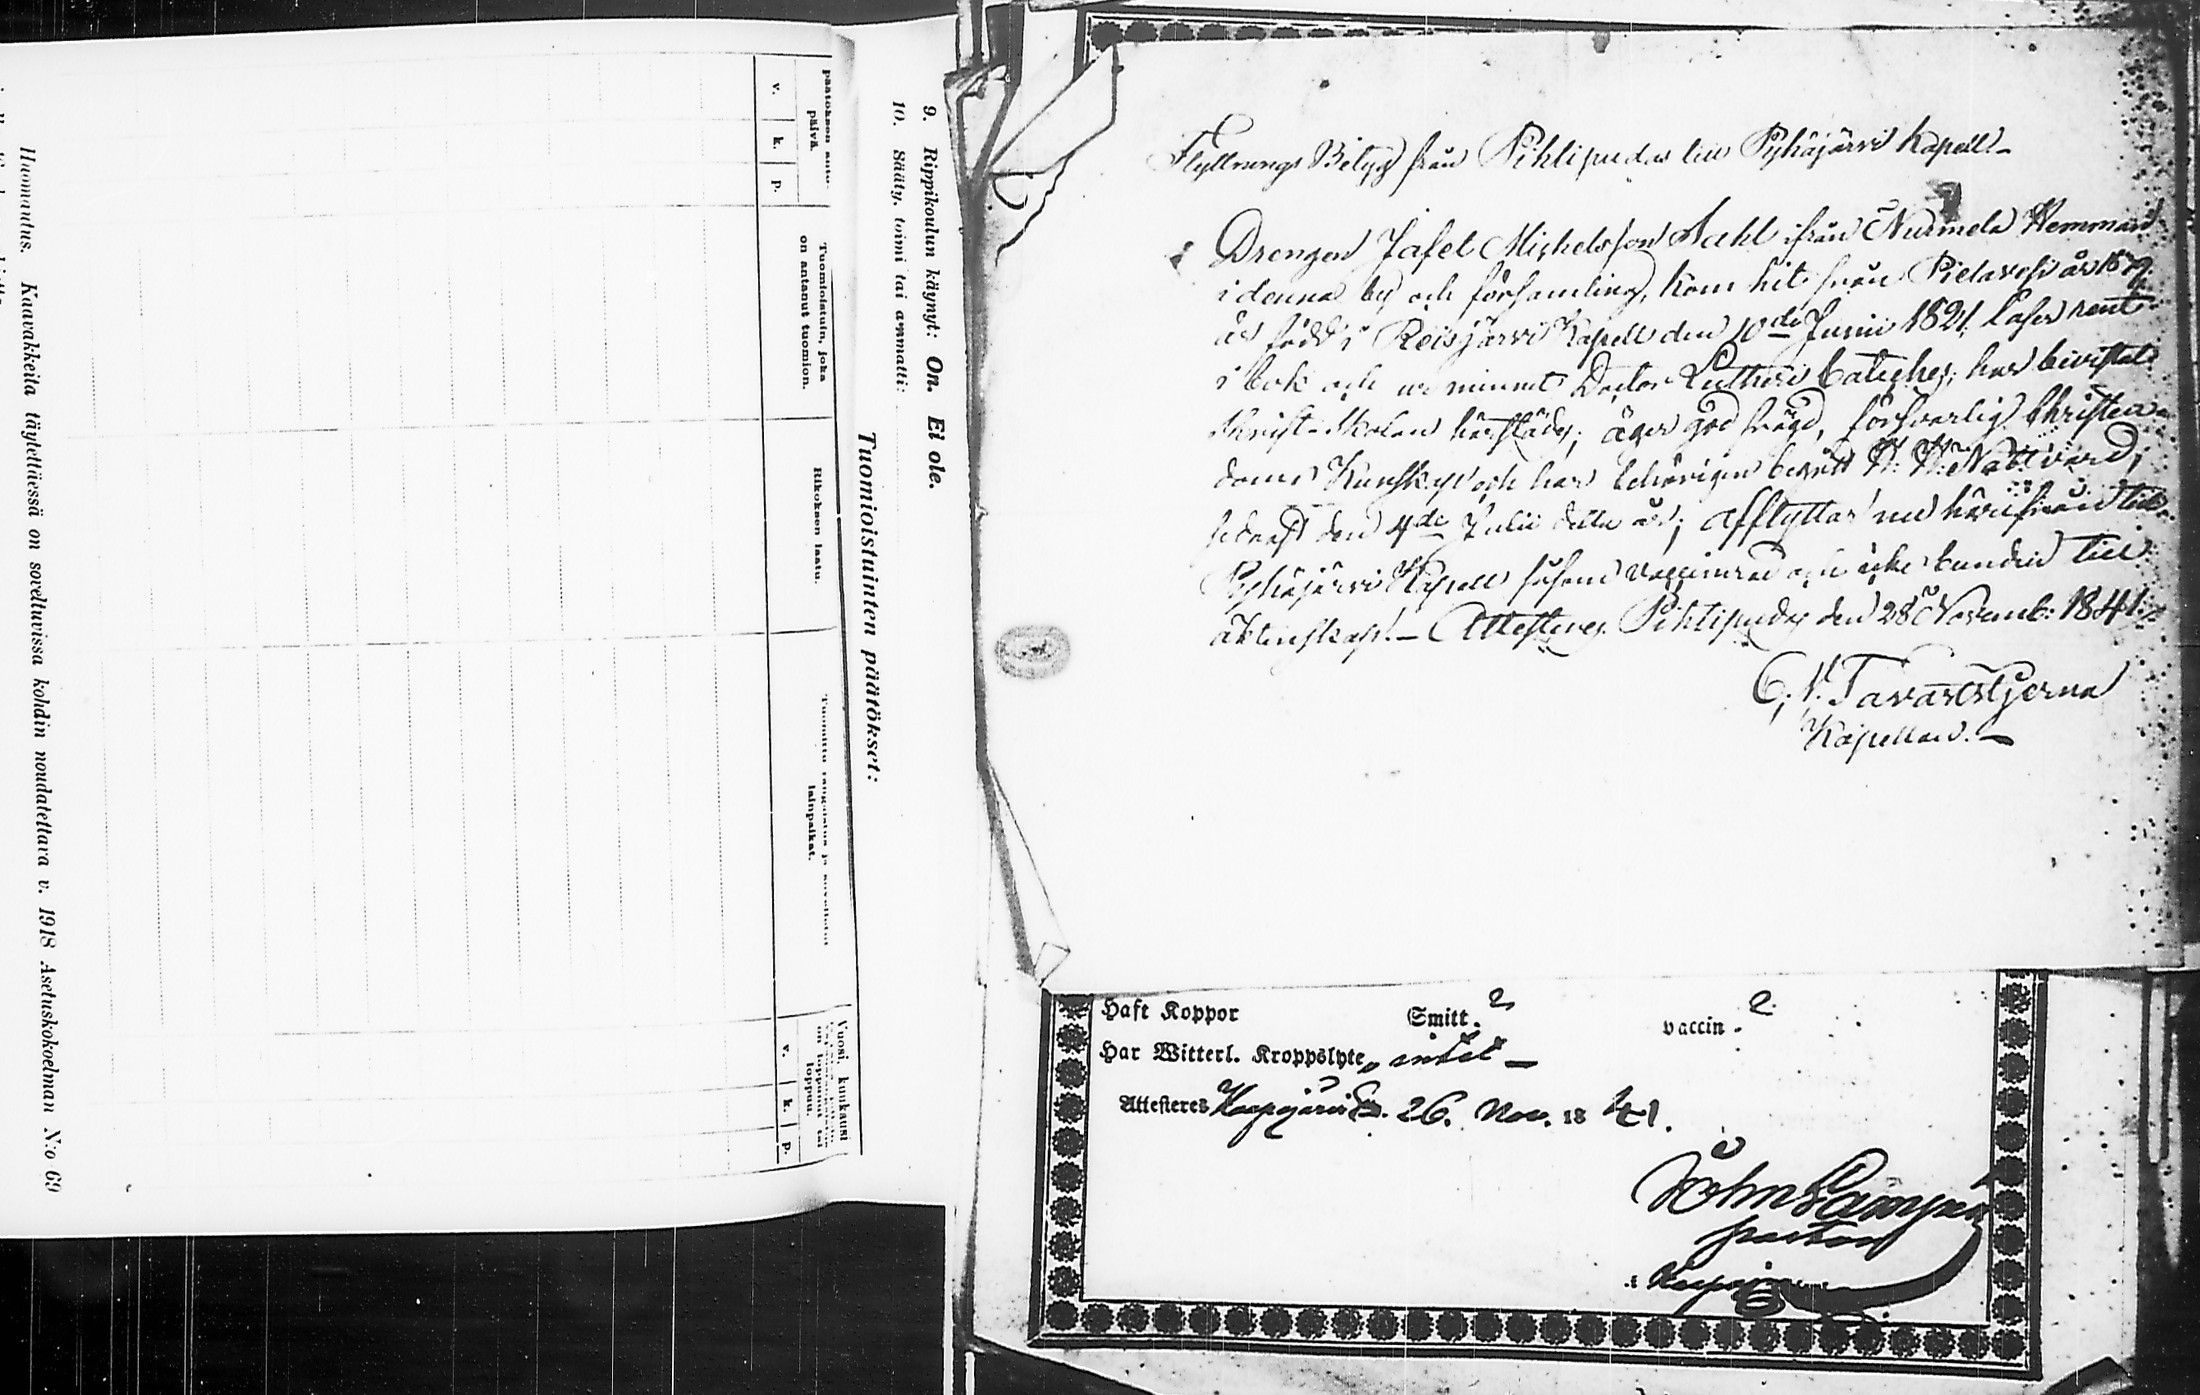 9. Rippikoulun käynyt: On. Ei ole.
10. Sääty, toimi tai ammatti:
Tuomioistuinten päätökset:
päätöksen anto-
päivä.
v. k. p.
Tuomioistuin, joka
on antanut tuomion.
Rikoksen laatu.
Tuomittu rangaistus ja sovelletut
lainpaikat.
Vuosi, kuukausi
loppuu.
v. k. p.
Huomautus. Kaavakkeita täytettäessä on soveltuvissa kohdin noudatettava v. 1918 Asetuskokoelman N:o 69
Flyttnings Betyg från Pihtipudas till Pyhäjärvi Kapell-
Drengen Jafet Michelsson Kahl ifrån Nurmela Hemman
i denna by och församling, kom hit från Pielavesi år
är född i Reisjärvi Kapell den 10de Junii 1821. Läser rent
i bok och ur minnet Doctor Lutheri Cateches; har bevistat
Skrift-Skolan härstädes; äger god frägd, försvarlig Christen-
doms Kunskap och har behörigen begått H. H. Nattvard,
sednast den 4de Julii detta år; afflyttar nu härifrån till
Pyhäjärvi Kapell såsom vaccinerad och icke bunden till
äktenskap!- Attesteres Pihtipudas den 28 Novemb: 1841.
C. N. Tavaststjerna
Kapellan.-
Haft Koppor Smitt. 2 vaccin. 2.
Har Witterl. Kroppslyte, intet -
Attesteres 26. Nov. 1841.
pastor